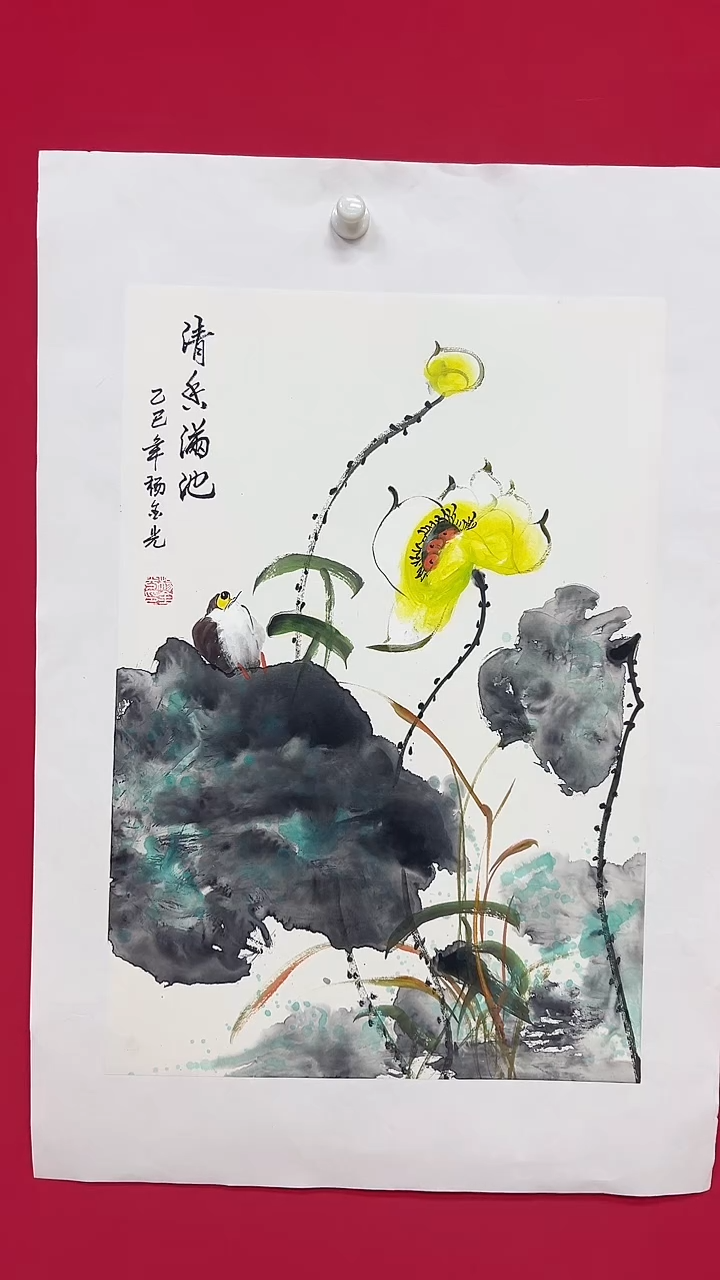 清香满池
乙巳年杨金光